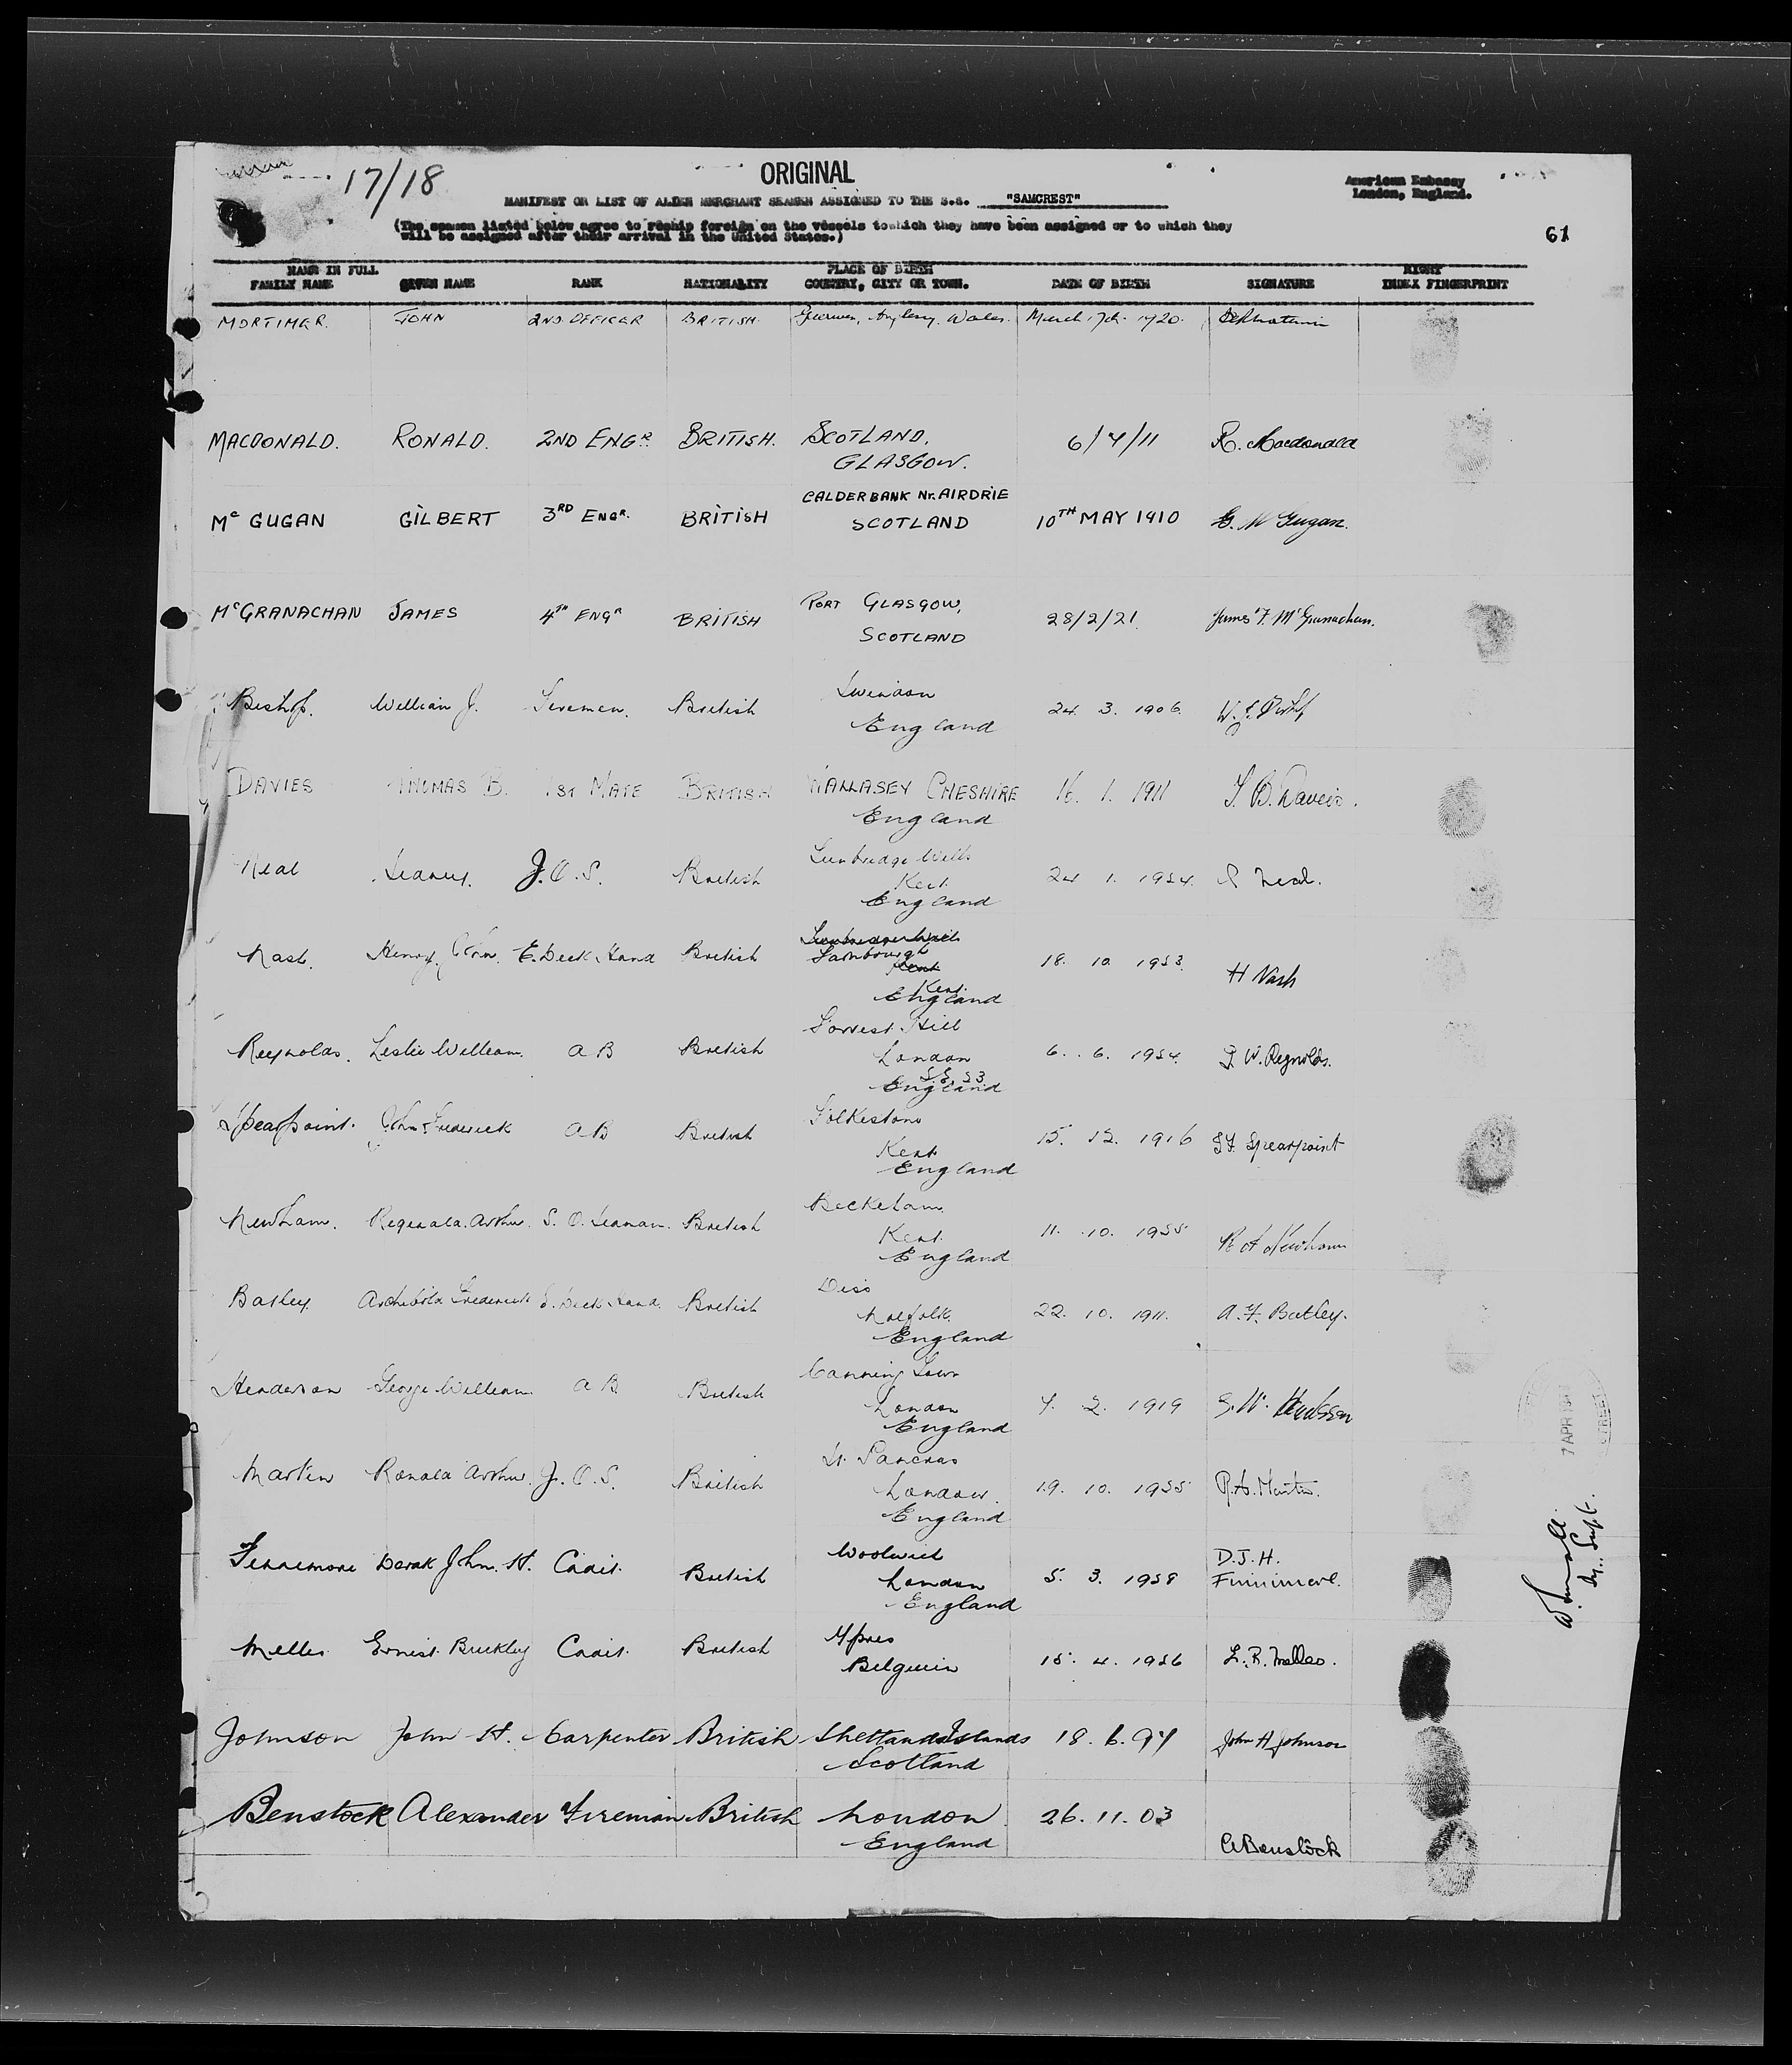 17/18
ORIGINAL
American Embassy
London, England.
MANIFEST OR LIST OF ALIEN MERCHANT SEAMEN ASSIGNED TO THE S.S. "SAMCREST"
(The seamen listed below agree to reship foreign on the vessels to which they have been assigned or to which they
will be assigned after their arrival in the United States.)
61
NAME IN FULL PLACE OF BIRTH RIGHT
FAMILY NAME GIVEN NAME RANK NATIONALITY COUNTRY, CITY OR TOWN. DATE OF BIRTH SIGNATURE INDEX FINGERPRINT
MORTIMER. JOHN 2ND. OFFICER BRITISH. Wales. March 17th 1920.
MACDONALD. RONALD. 2ND ENGR. BRITISH. SCOTLAND, 6/4/11 R. Macdonald
GLASGOW.
CALDERBANK Nr. AIRDRIE
Mc GUGAN GILBERT 3RD ENGR. BRITISH SCOTLAND 10TH MAY 1910 G. Mc Gugan.
McGRANACHAN JAMES 4TH ENGR BRITISH PORT GLASGOW, 28/2/21. James F. McGranachan.
SCOTLAND
Bishop. William J. Firemen. British Swindon 24. 3. 1906.
England
DAVIES THOMAS B. 1ST MATE BRITISH WALLASEY CHESHIRE 16. 1. 1911 T. B. Davies.
England
Neal Sidney. J.O.S. British Tunbridge Wells 24 1. 1924. S Neal.
Kent.
England
Nash. Henry John. E. Deck Hand British Tunbridge Wells 18. 10 1923. H Nash
Farnborough
Kent
Kent.
England
Reynolds. Leslie William. A B British Forrest Hill 6. 6. 1924. L W. Reynolds.
London
S.E. 23
England
Spearpoint. John Frederick A B British Folkestone 15. 12. 1916 J F. Spearpoint
Kent
England
Newham. Reginald Arthur. S. O. Seaman. British Beckenham 11. 10. 1925 R A Newham
Kent.
England
Batley. Archibald Frederick E. Deck Hand. British Diss 22. 10. 1911. A. F. Batley.
Norfolk.
England
Henderson George William A B British Canning Town 4. 2. 1919 G. W. Henderson
London
England
Martin Ronald Arthur. J. O. S. British St. Pancras 19. 10. 1925 R.A. Martin.
London.
England
Finnemore Derek John. H. Cadet. British Woolwich 5. 3. 1928 D. J. H.
London Finnimore.
England
Melles Ernest Buckley Cadet. British Ypres 15. 4. 1926
Belguin
Johnson John H. Carpenter British Shetland Islands 18. 6. 94 John H Johnson
Scotland
Benstock Alexander Fireman British London 26. 11. 03 A Benstock
England
7 APR 194
STREET